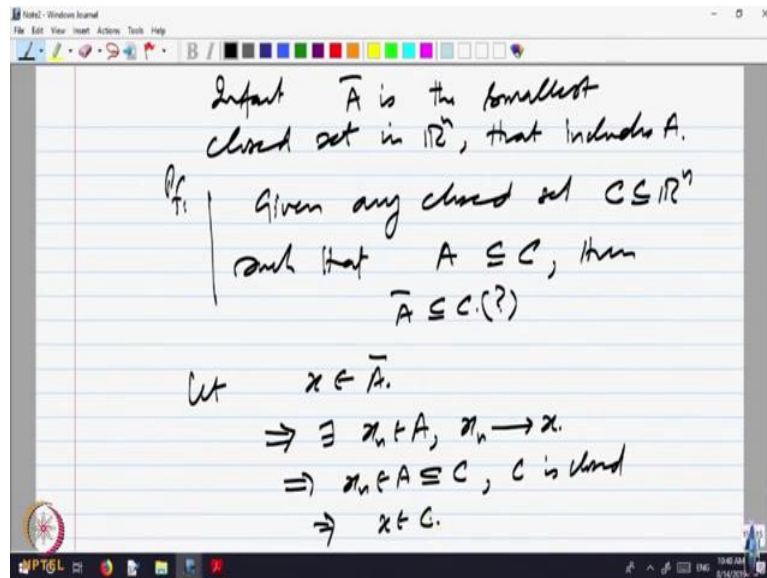 Note2 - Windows Journal
File Edit View Insert Actions Tools Help
B I
Infact Ā is the smallest
closed set in ℝⁿ, that includes A.
Pf: Given any closed set C ⊆ ℝⁿ
such that A ⊆ C, then
Ā ⊆ C.(?)
Let x ∈ Ā.
⇒ ∃ xₙ ∈ A, xₙ → x.
⇒ xₙ ∈ A ⊆ C, C is closed
⇒ x ∈ C.
NPTEL
ENG
10:40 AM